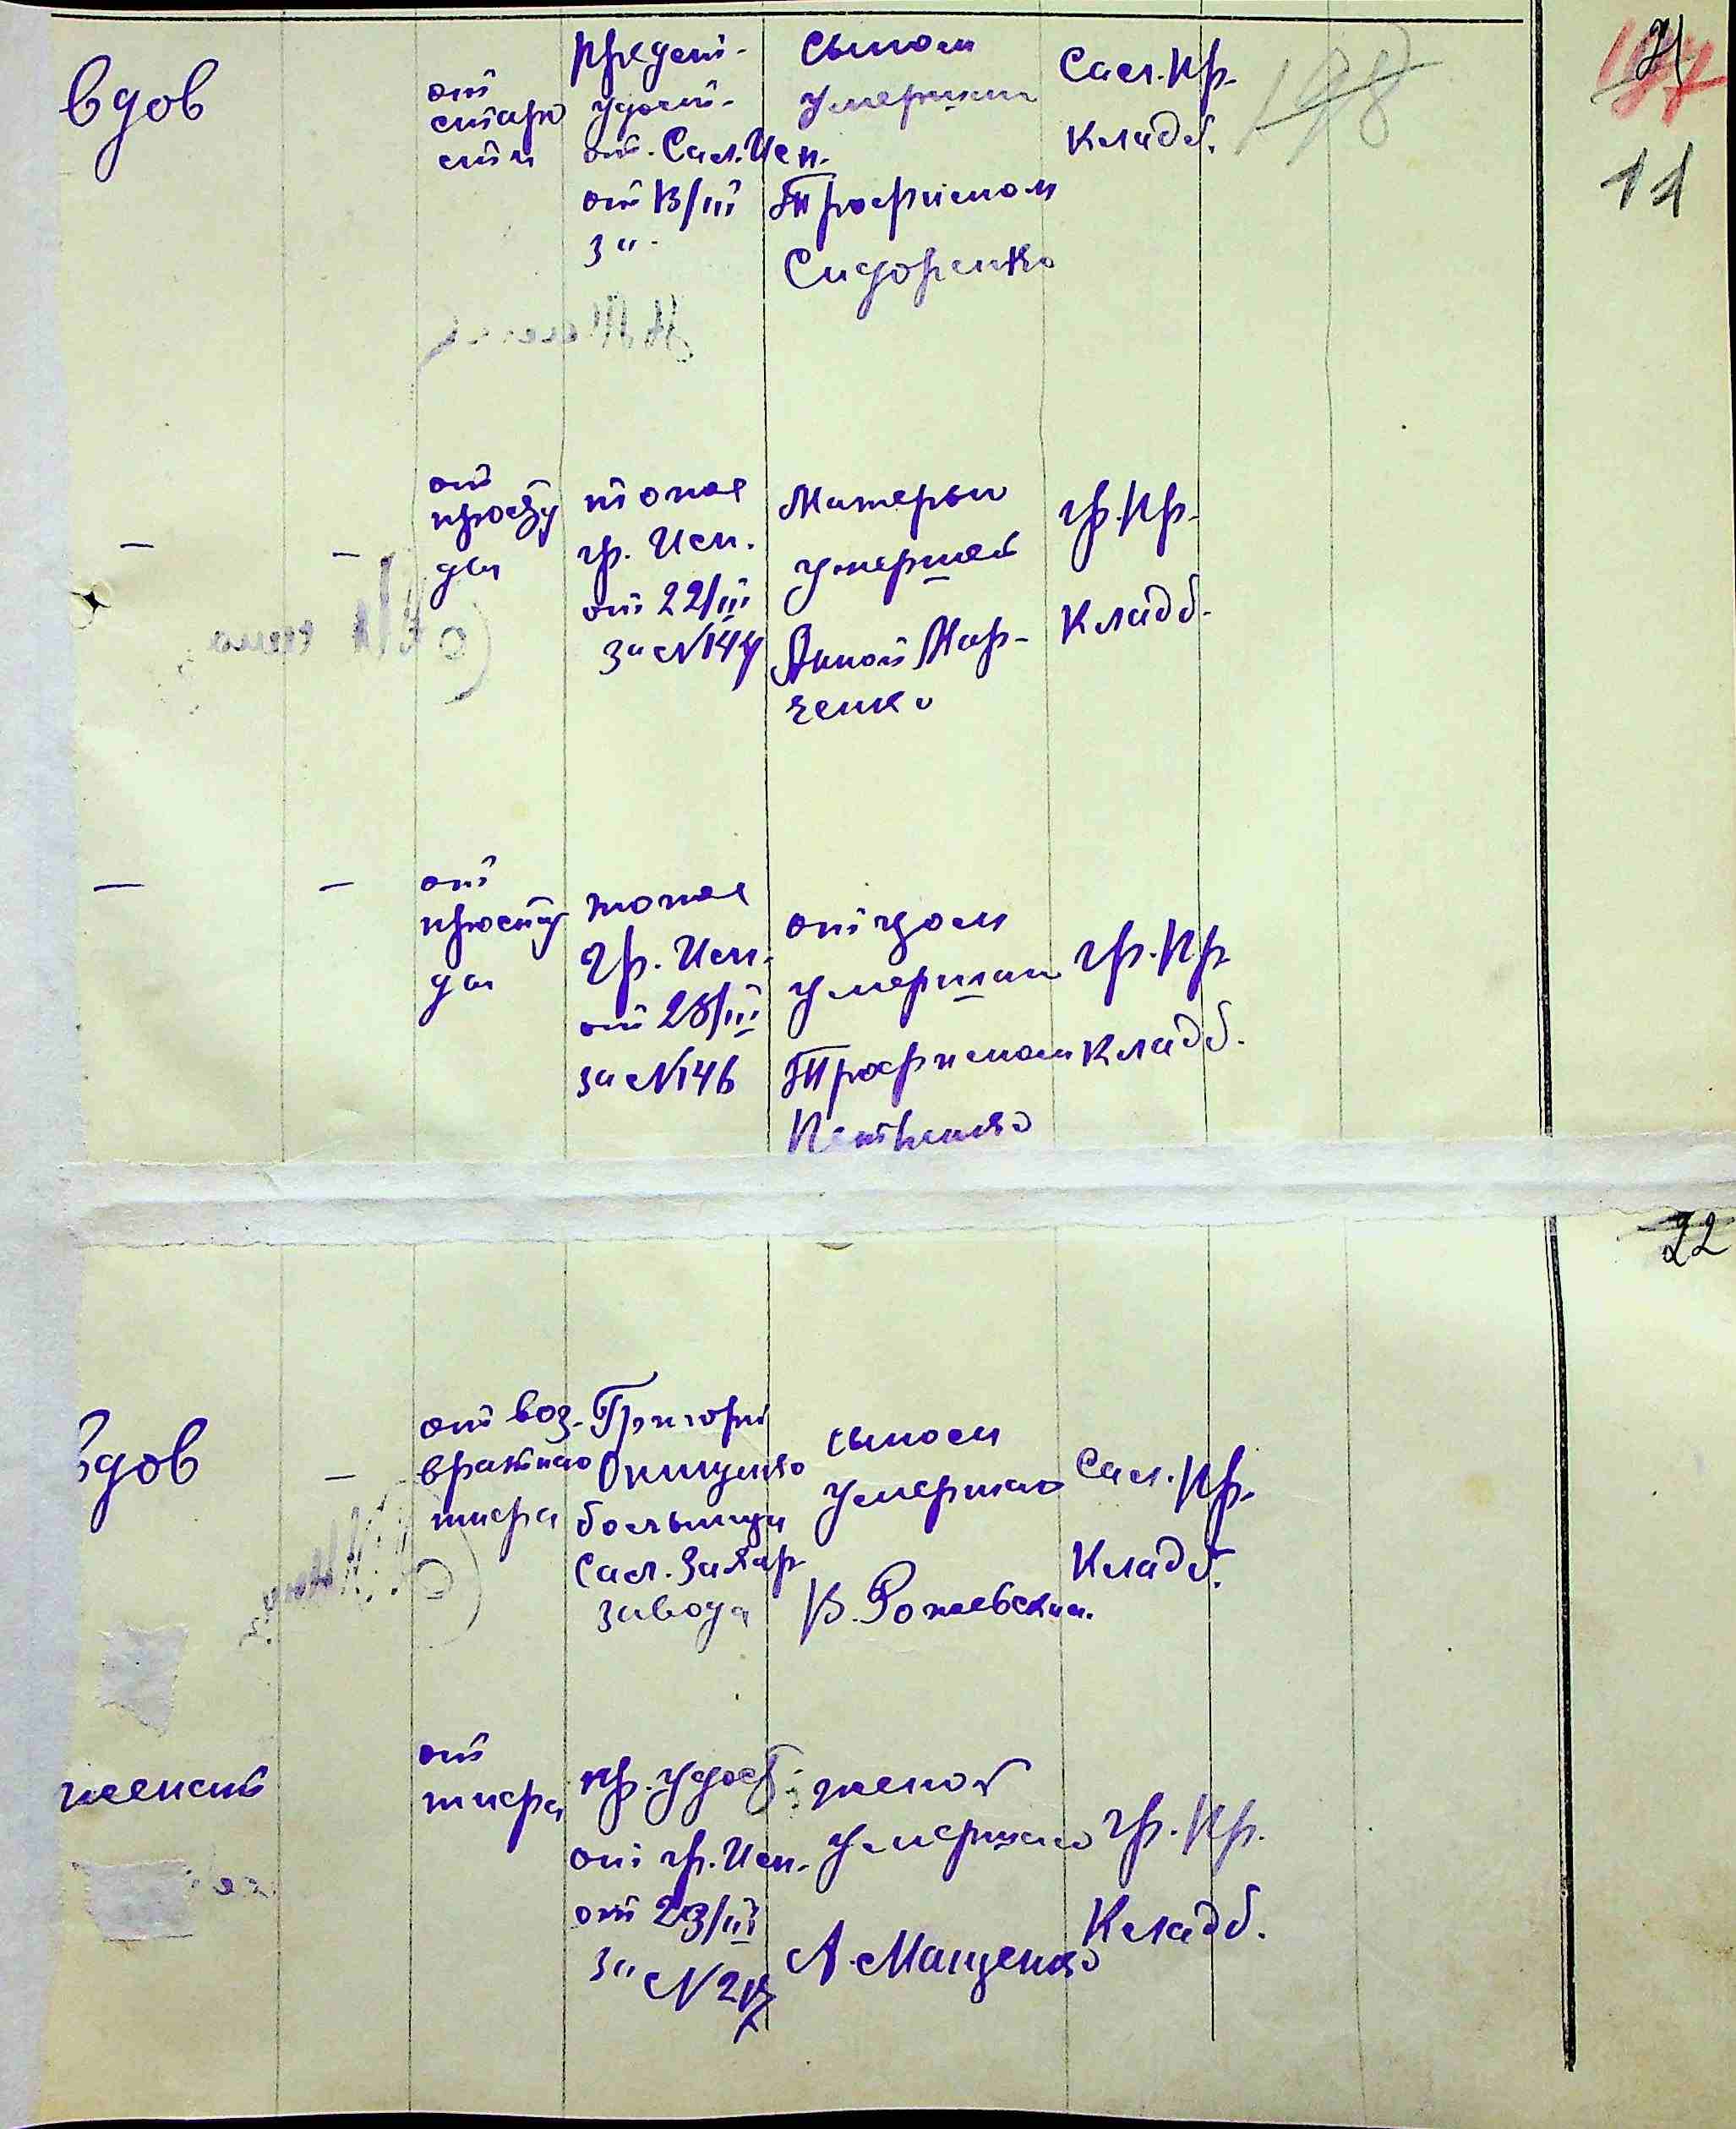 вдов
от
старо
сти
Предст-
удост-
от. Сал. Исп.
от 13/III
за -
Сыном
умершаго
Трофимом
Сидоренко
Сал. Пр.
Кладб.
198
11
—
—
от
просту
ды
тоже
гр. Исп.
от 22/III
за №144
Матерью
умершей
Анной Мар-
ченко
гр. Пр.
Кладб.
—
—
от
просту
ды
тоже
гр. Исп.
от 28/III
за №146
отцом
умершаго
Трофимом
Петренко
гр. Пр.
Кладб.
22
вдов
—
от воз-
вратнаго
тифа
Григорий
Онищенко
больницы
Сал. Захар
завода
сыном
умершаго
В.
Сал. Пр.
Кладб.
женат
от
тифа
пр. удост
от гр. Исп.
от 23/III
за №
женой
умершаго
А. Мащенко
гр. Пр.
Кладб.